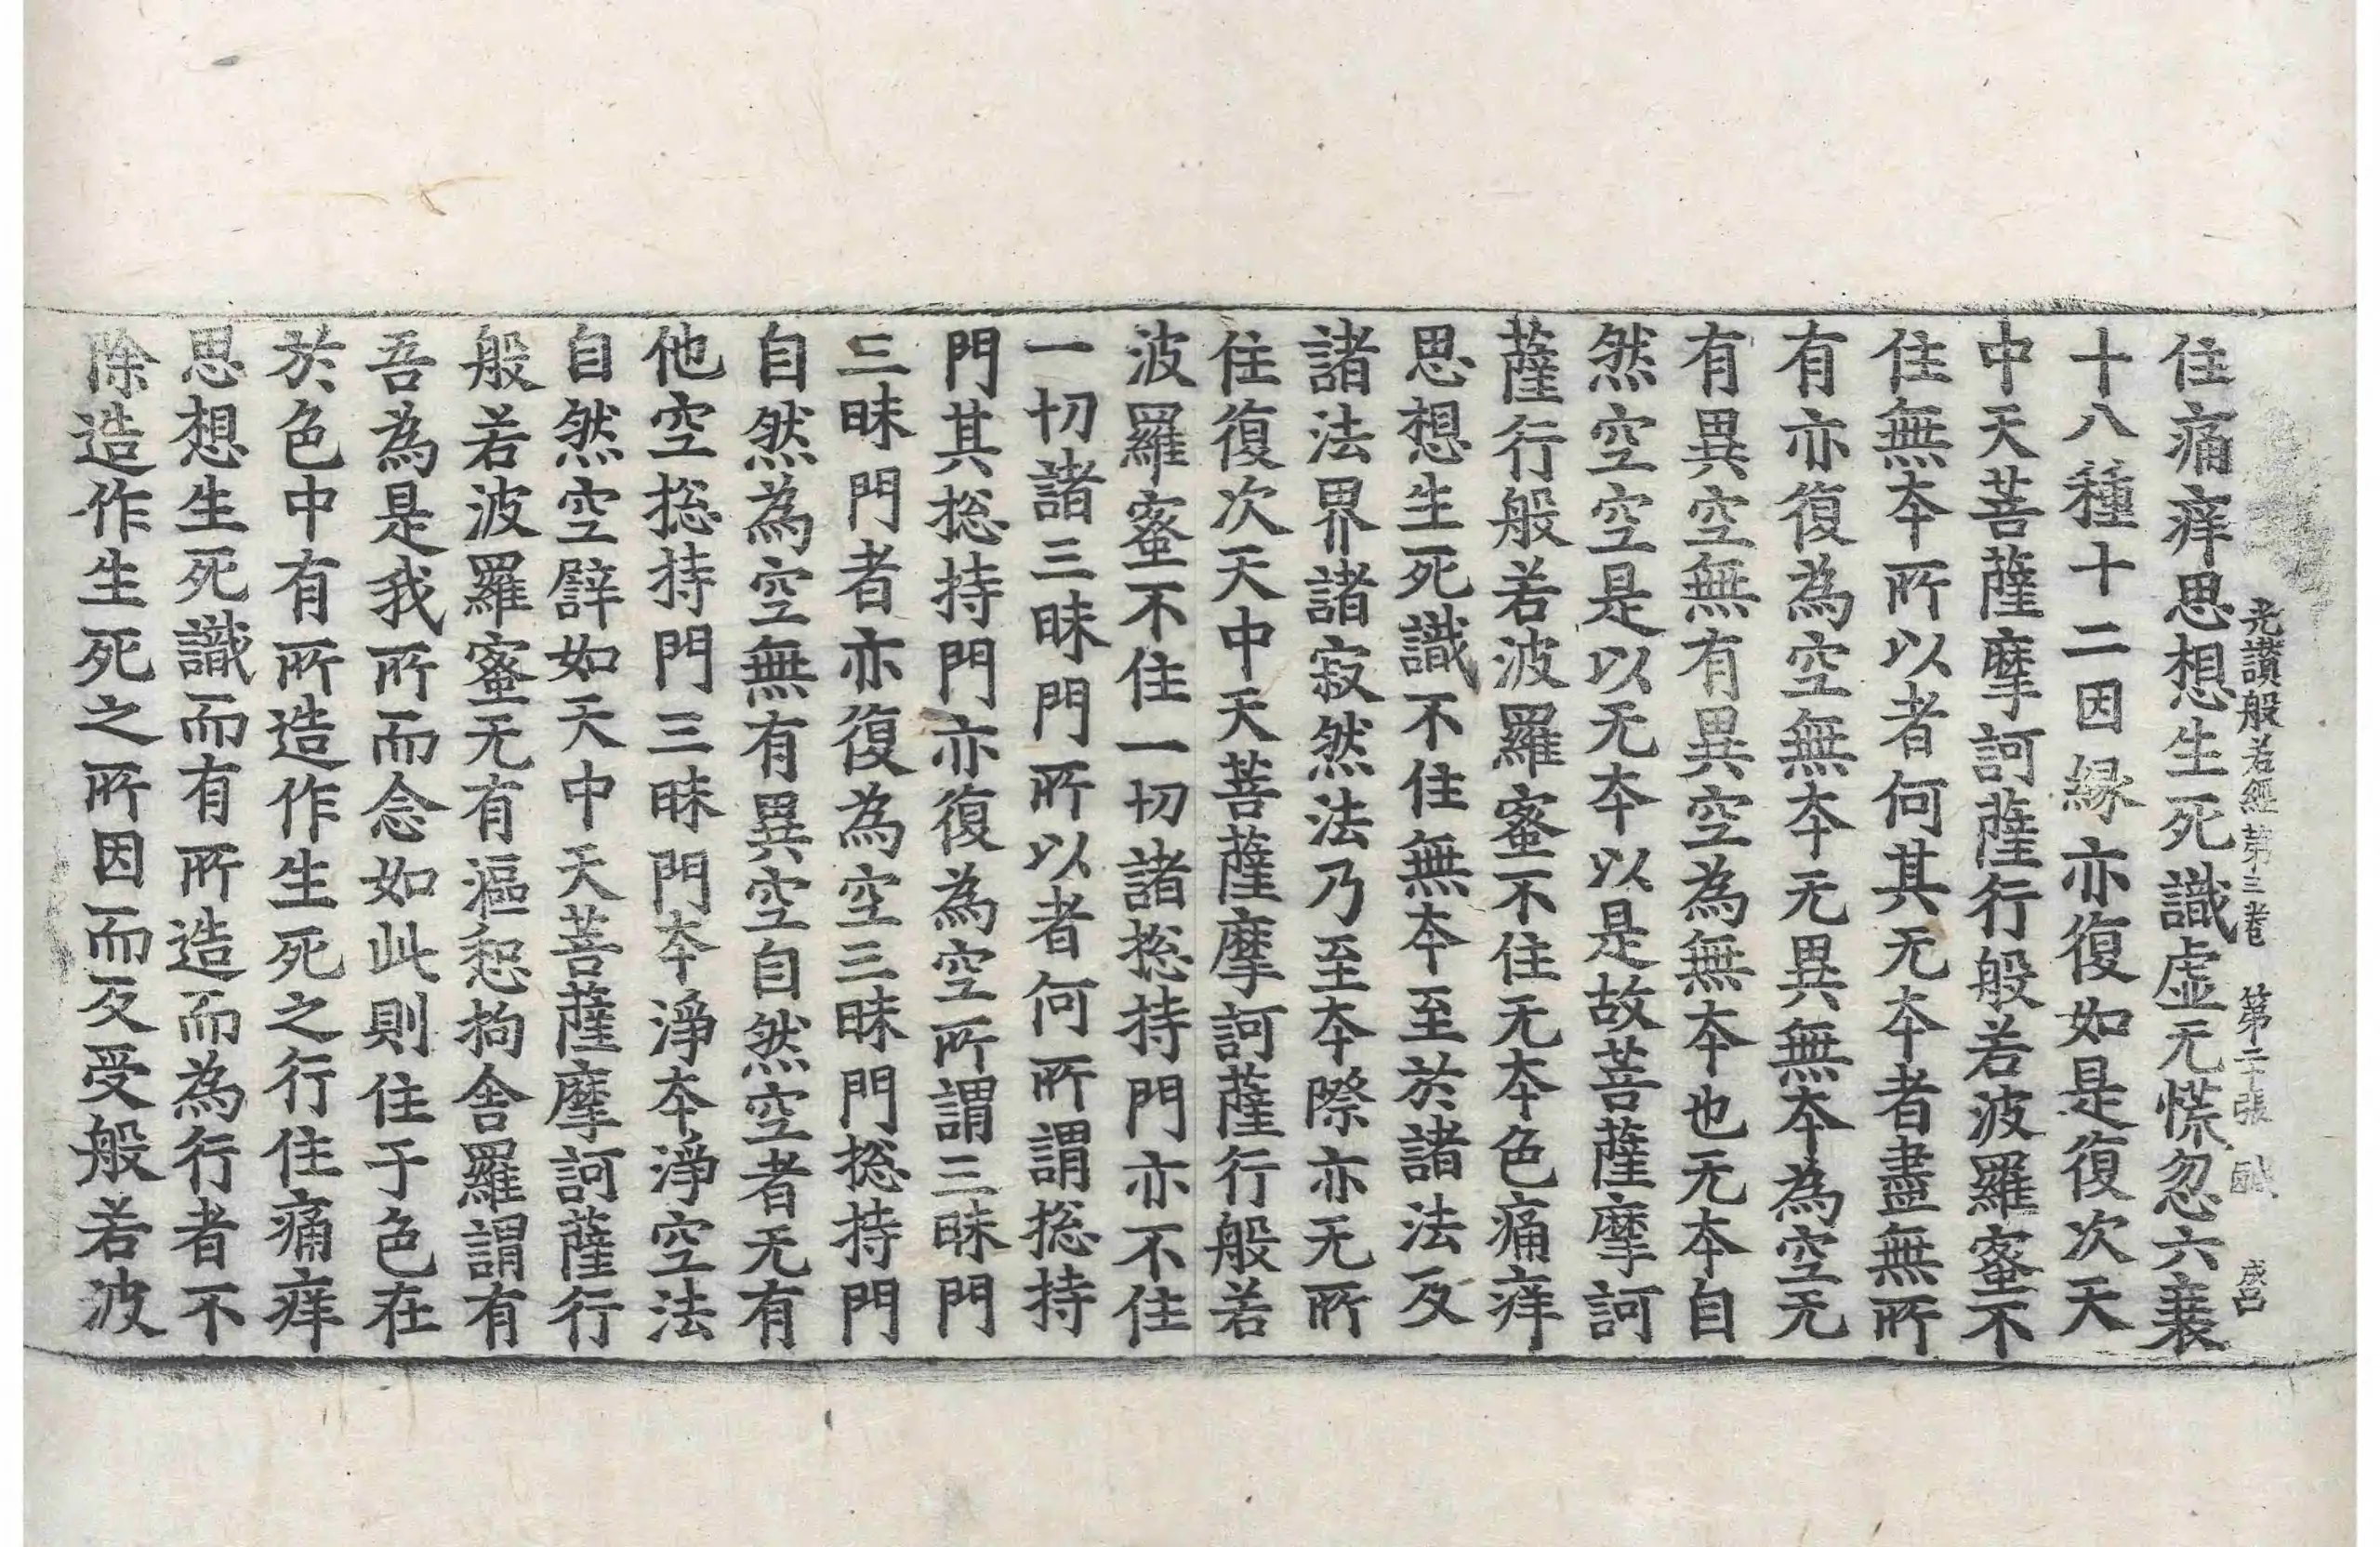 光讚般若經第三卷　第二十張　醎
住痛痒思想生死識虛无慌忽六衰
十八種十二因緣亦復如是復次天
中天菩薩摩訶薩行般若波羅蜜不
住無本所以者何其无本者盡無所
有亦復為空無本无異無本為空无
有異空無有異空為無本也无本自
然空空是以无本以是故菩薩摩訶
薩行般若波羅蜜不住无本色痛痒
思想生死識不住無本至於諸法及
諸法界諸寂然法乃至本際亦无所
住復次天中天菩薩摩訶薩行般若
波羅蜜不住一切諸揔持門亦不住
一切諸三昧門所以者何所謂揔持
門其揔持門亦復為空所謂三昧門
三昧門者亦復為空三昧門揔持門
自然為空無有異空自然空者无有
他空揔持門三昧門本淨本淨空法
自然空辟如天中天菩薩摩訶薩行
般若波羅蜜无有漚惒拘舍羅謂有
吾為是我所而念如此則住于色在
於色中有所造作生死之行住痛痒
思想生死識而有所造而為行者不
除造作生死之所因而反受般若波